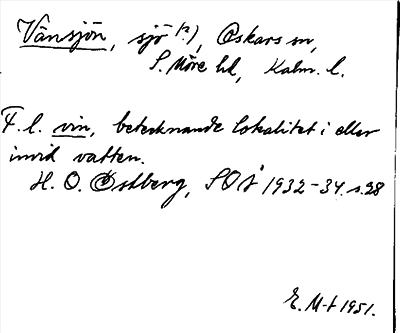 Vänsjön, sjö (?), Oskars sn,
S. Möre hd, Kalm. l.
F. l. vin, betecknande lokalitet i eller
invid vatten.
H. O. Östberg, SOÅ 1932-34. s. 28
E. M-t 1951.